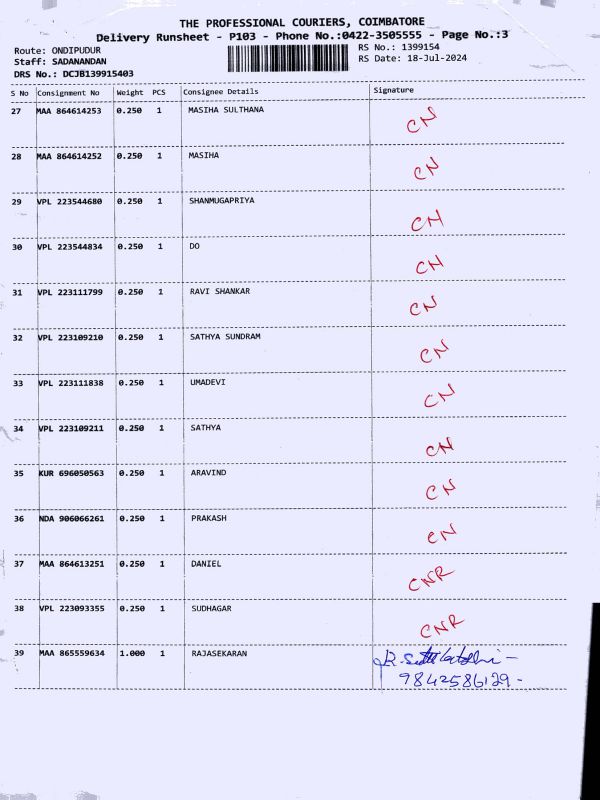 THE PROFESSIONAL COURIERS, COIMBATORE
Delivery Runsheet - P103 - Phone No.:0422-3505555 - Page No.:3
Route: ONDIPUDUR
RS No.: 1399154
Staff: SADANANDAN
RS Date: 18-Jul-2024
DRS No.: DCJB139915403
S No Consignment No Weight PCS Consignee Details Signature
27 MAA 864614253 0.250 1 MASIHA SULTHANA CN
28 MAA 864614252 0.250 1 MASIHA CN
29 VPL 223544680 0.250 1 SHANMUGAPRIYA CN
30 VPL 223544834 0.250 1 DO CN
31 VPL 223111799 0.250 1 RAVI SHANKAR CN
32 VPL 223109210 0.250 1 SATHYA SUNDRAM CN
33 VPL 223111838 0.250 1 UMADEVI CN
34 VPL 223109211 0.250 1 SATHYA CN
35 KUR 696050563 0.250 1 ARAVIND CN
36 NDA 906066261 0.250 1 PRAKASH CN
37 MAA 864613251 0.250 1 DANIEL CNR
38 VPL 223093355 0.250 1 SUDHAGAR CNR
39 MAA 865559634 1.000 1 RAJASEKARAN R.
9842586129 -